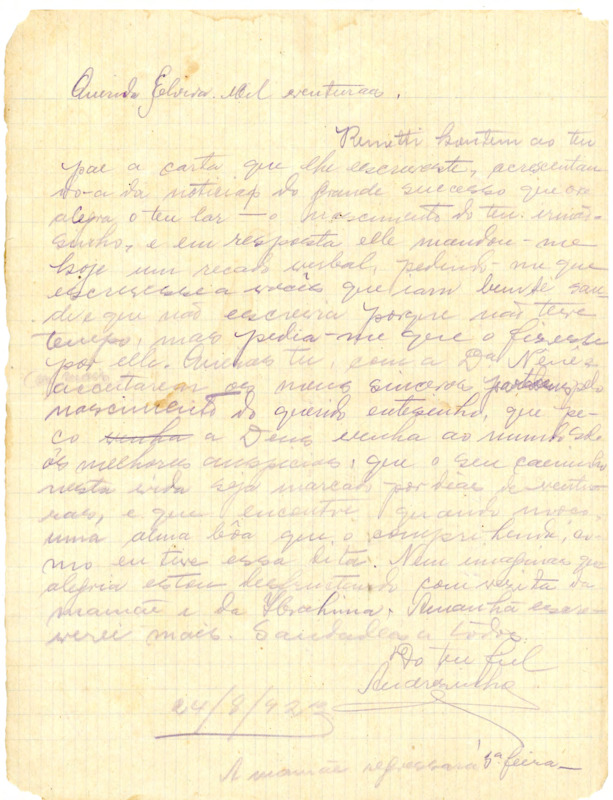 Querida Elvira. Mil venturas.
Remetti hontem ao teu
pae a carta que lhe escreveste, acrescentan
do-a da noticia do grande successo que ora
alegra o teu lar — o nascimento do teu irmão-
sinho, e em resposta elle mandou-me
hoje um recado verbal, pedindo-me que
escrevesse a vocês que iam bem de sau-
de e que não escrevia porque não teve
tempo, mas pedia-me que o fizesse
por elle. Queiras tu, com a Da
acceitarem os meus sinceros parabens pelo
nascimento do querido entesinho, que pe-
ço venha a Deus venha ao mundo sob
os melhores auspicios; que o seu caminho
nesta vida seja marcado por dias de ventu-
ras, e que encontre, quando moço,
uma alma bôa que o comprehenda, co-
mo eu tive essa dita. Nem imaginas que
alegria estou desfructando com vezita da
mamãe e da Ibrahima. Amanhã escre-
verei mais. Saudades a todos.
Do teu fiel
24/8/923
A mamãe regressará 5ª feira—